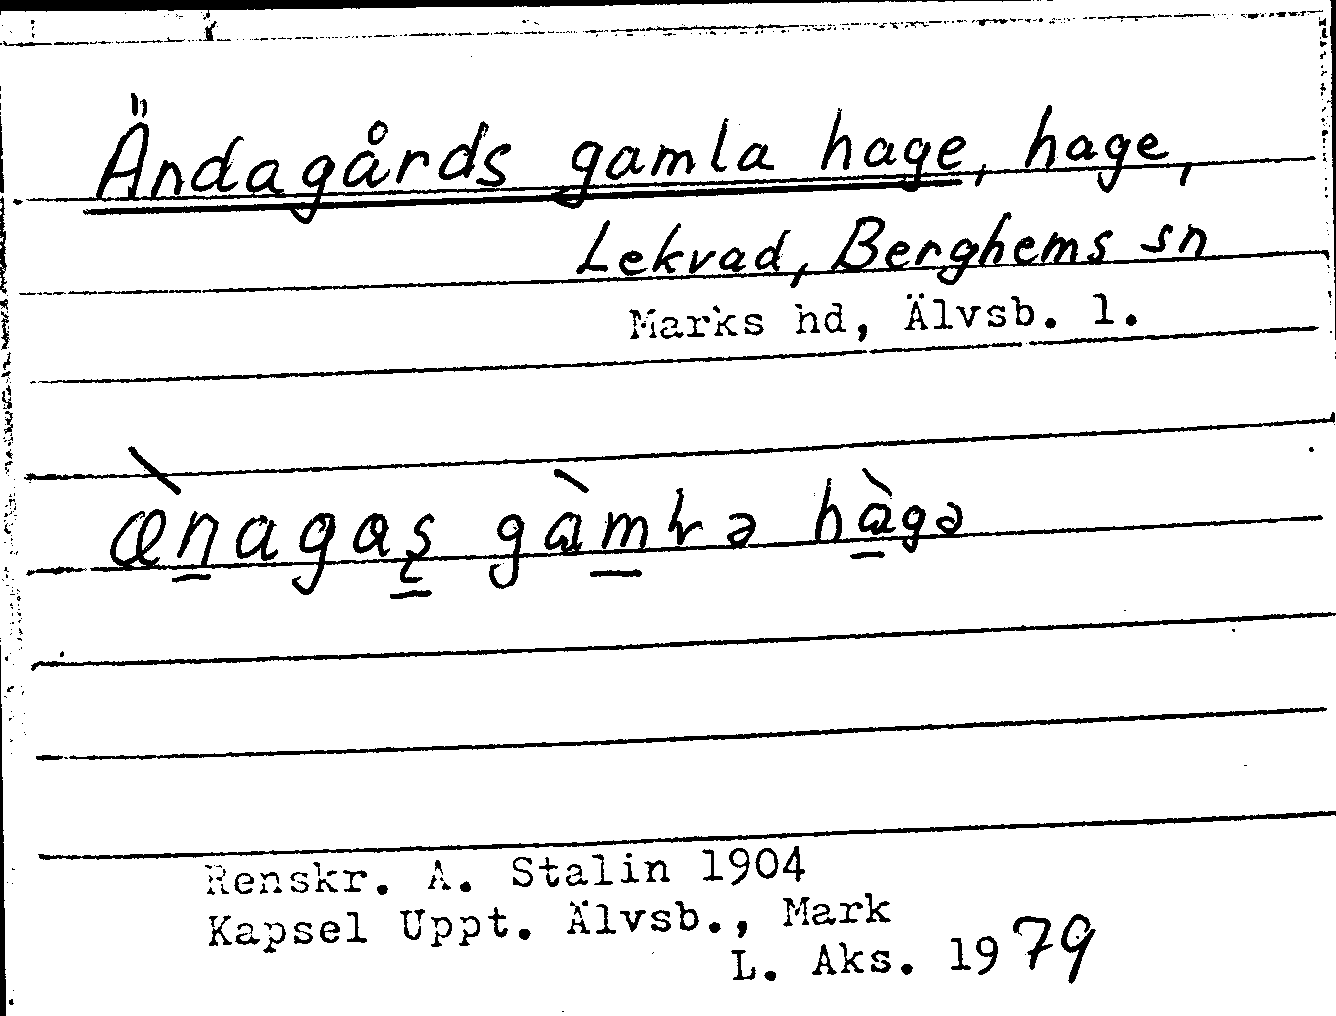 Ändagårds gamla hage, hage,
Lekvad, Berghems sn
Marks hd, Älvsb. l.
æ̀n̠agaʂ̠ gàm̠ɫə hà̠gə
Renskr. A. Stalin 1904
Kapsel Uppt. Älvsb., Mark
L. Aks. 1979